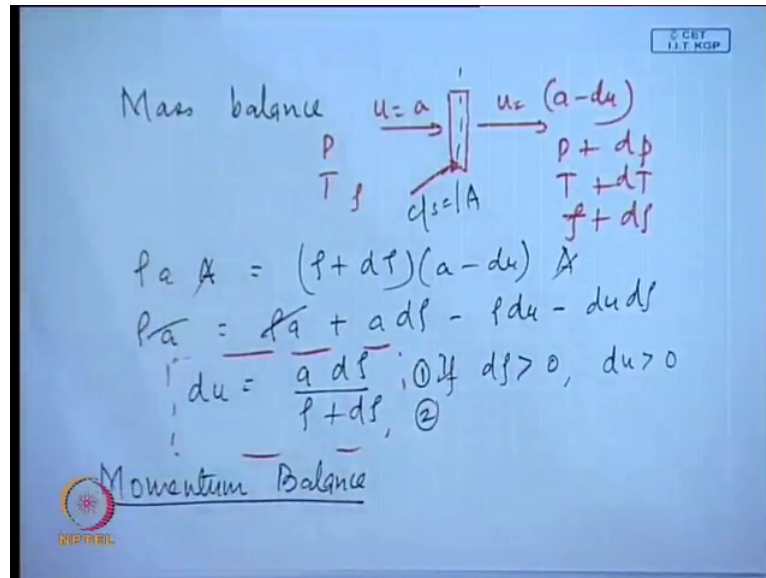 © CET
I.I.T. KGP
Mass balance u = a u = (a - du)
P P + dp
T ρ T + dT
c/s = A ρ + dρ
ρ a A = (ρ + dρ)(a - du) A
ρa = ρa + a dρ - ρdu - du dρ
du = a dρ / ρ + dρ, ; ① If dρ > 0, du > 0
②
Momentum Balance
NPTEL